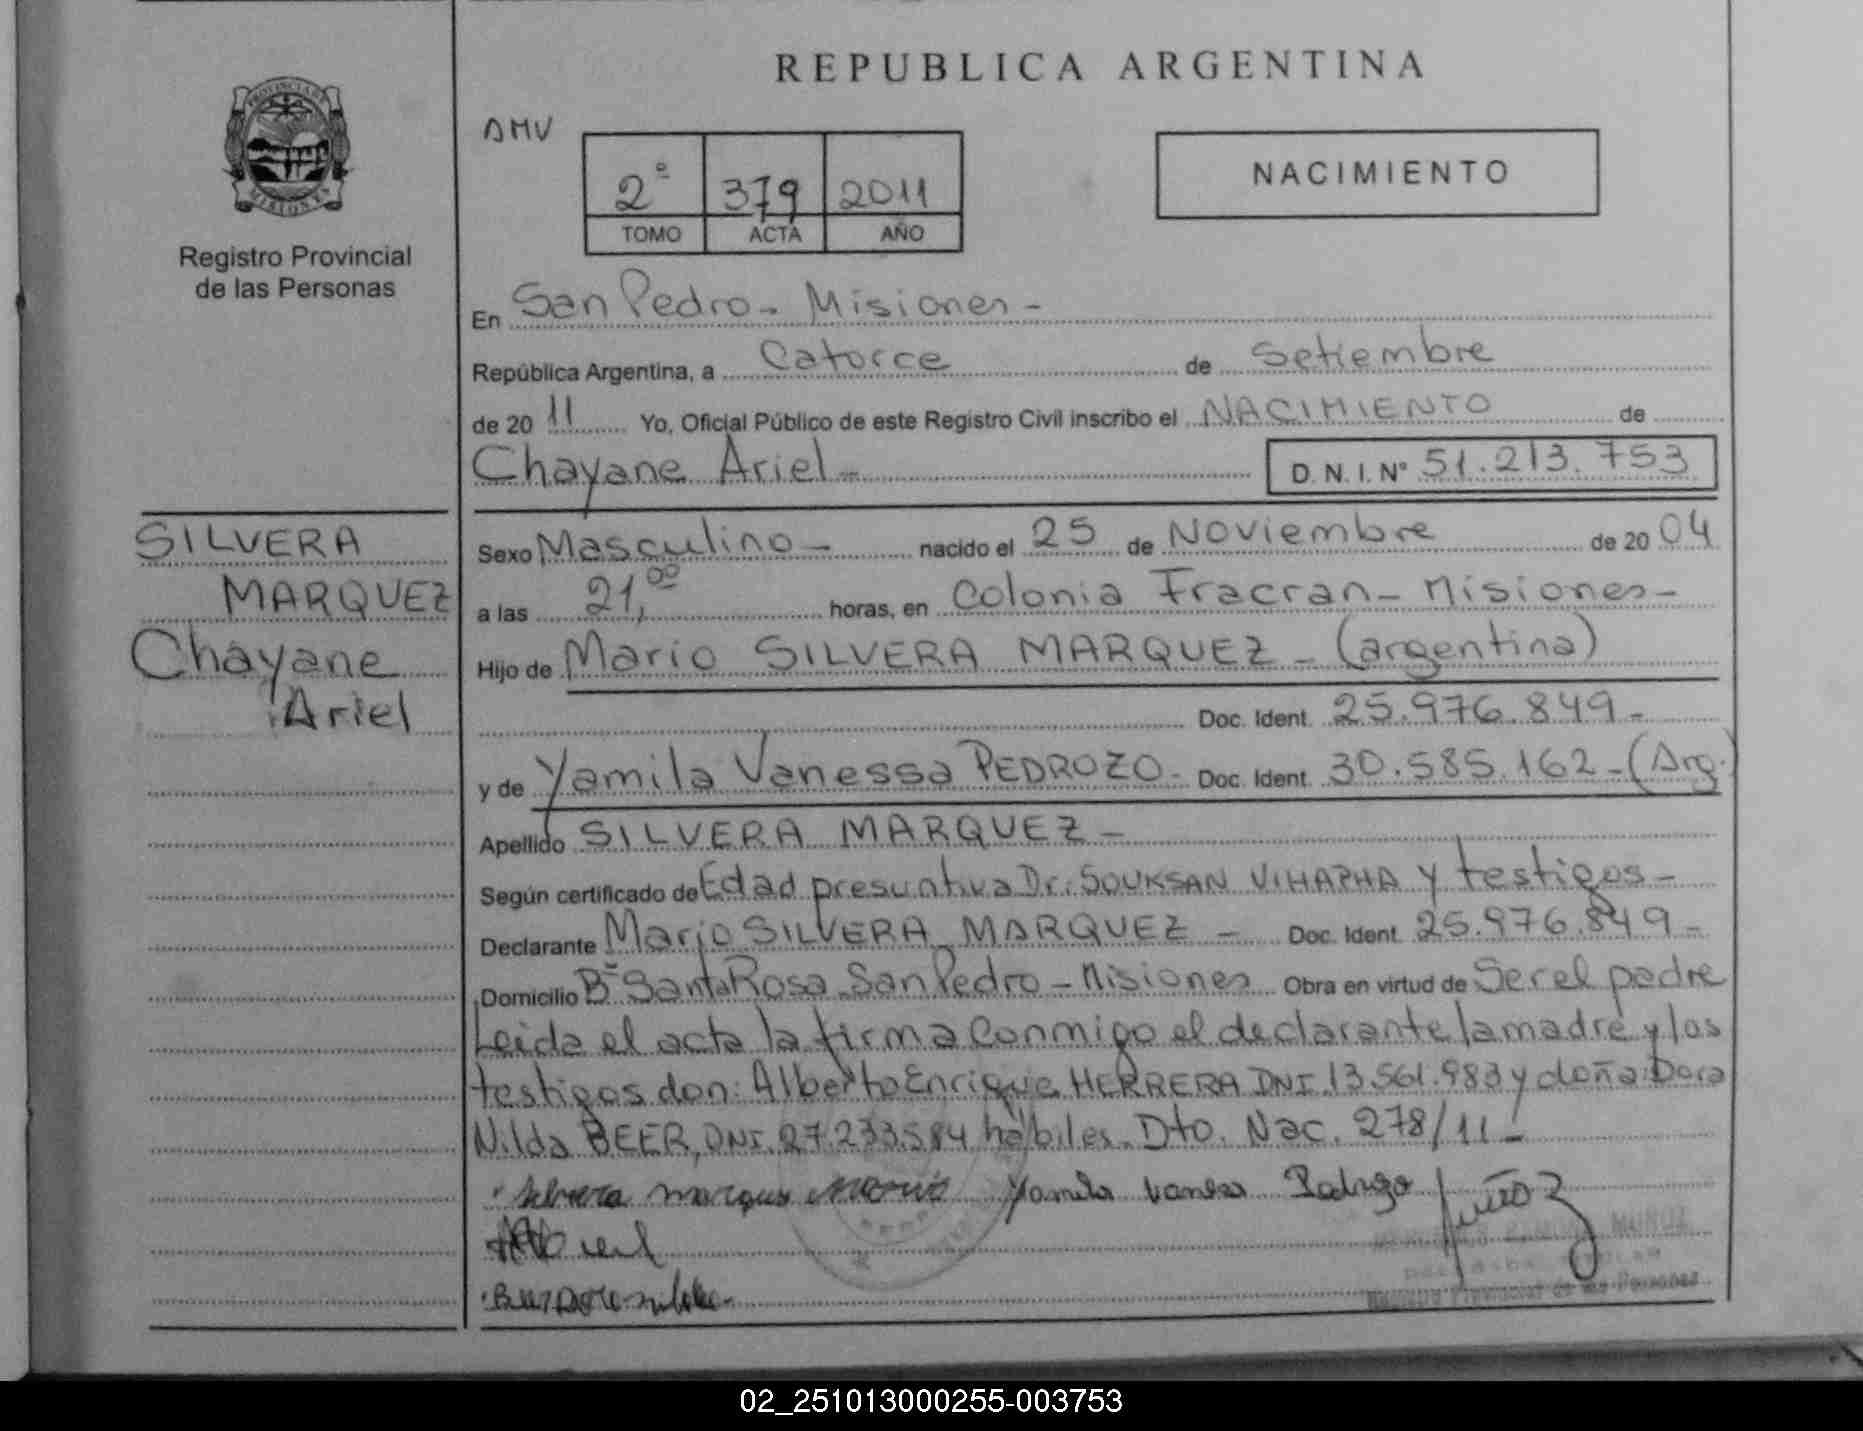 REPUBLICA ARGENTINA
PROVINCIA DE
MISIONES
Registro Provincial
de las Personas
DMV
2º 379 2011
TOMO ACTA AÑO
NACIMIENTO
En San Pedro - Misiones -
República Argentina, a Catorce de Setiembre
de 20 11 Yo, Oficial Público de este Registro Civil inscribo el NACIMIENTO de
Chayane Ariel - D. N. I. Nº 51.213.753
SILVERA
MARQUEZ
Chayane
Ariel
Sexo Masculino - nacido el 25 de Noviembre de 20 04
a las 21,00 horas, en Colonia Fracran - Misiones -
Hijo de Mario SILVERA MARQUEZ - (argentina)
Doc. Ident. 25.976.849 -
y de Yamila Vanessa PEDROZO - Doc. Ident. 30.585.162 - (Arg.)
Apellido SILVERA MARQUEZ -
Según certificado de Edad presuntiva Dr. SOUKSAN VIHAPHA y testigos -
Declarante Mario SILVERA MARQUEZ - Doc. Ident. 25.976.849 -
Domicilio Bº Santa Rosa San Pedro - Misiones Obra en virtud de Ser el padre
Leida el acta la firma conmigo el declarante la madre y los
testigos don: Alberto Enrique HERRERA DNI 13.561.983 y doña: Dora
Nilda BEER, DNI. 27.233.584 habiles. Dto. Nac. 278/11 -
Silvera marques Mario Yamila Vanesa Pedrozo
MUÑOZ
Registro Provincial de las Personas
02_251013000255-003753